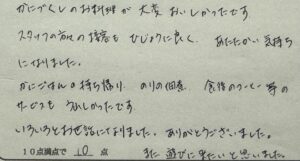 かにづくしのお料理が大変おいしかったです。
スタッフの方々の接客もひじょうに良く、あたたかい気持ち
になりました。
かにごはんの持ち帰り、のりの佃煮、食後のコーヒー等の
サービスもうれしかったです。
いろいろとお世話になりました。ありがとうございました。
10点満点で 10 点 また遊びに来たいと思いました。